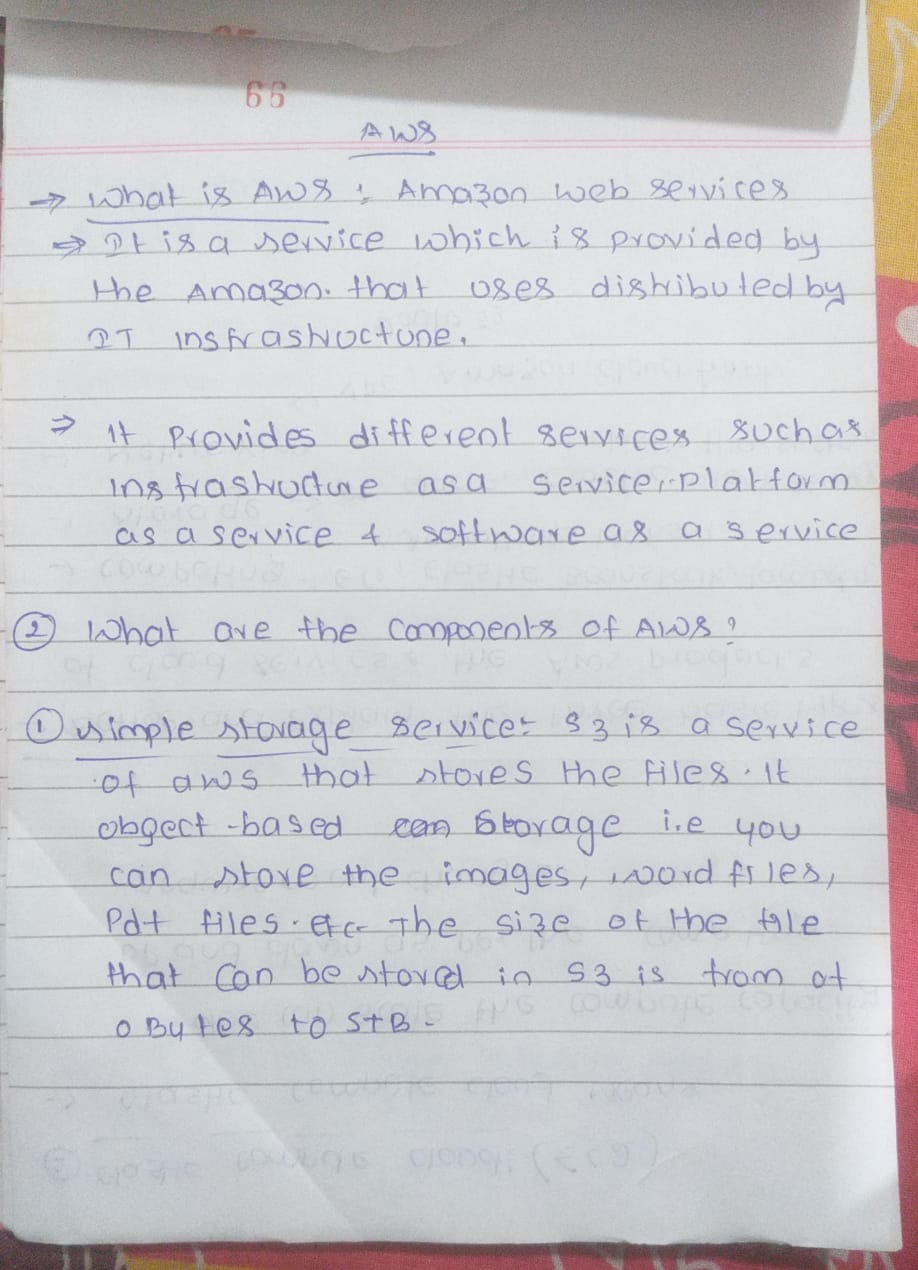 66
AWS
→ What is AWS : Amazon web services
⇒ It is a service which is provided by
the Amazon. that uses distributed by
IT insfrastructure.
⇒ it Provides different services such as
insfrastructure as a service, platform
as a service & software as a service
② What are the Components of AWS?
① simple storage service: S3 is a service
of aws that stores the files. It
object-based storage i.e you
can store the images, word files,
Pdf files. etc- The size of the file
that can be stored in S3 is from of
0 Bytes to 5TB.